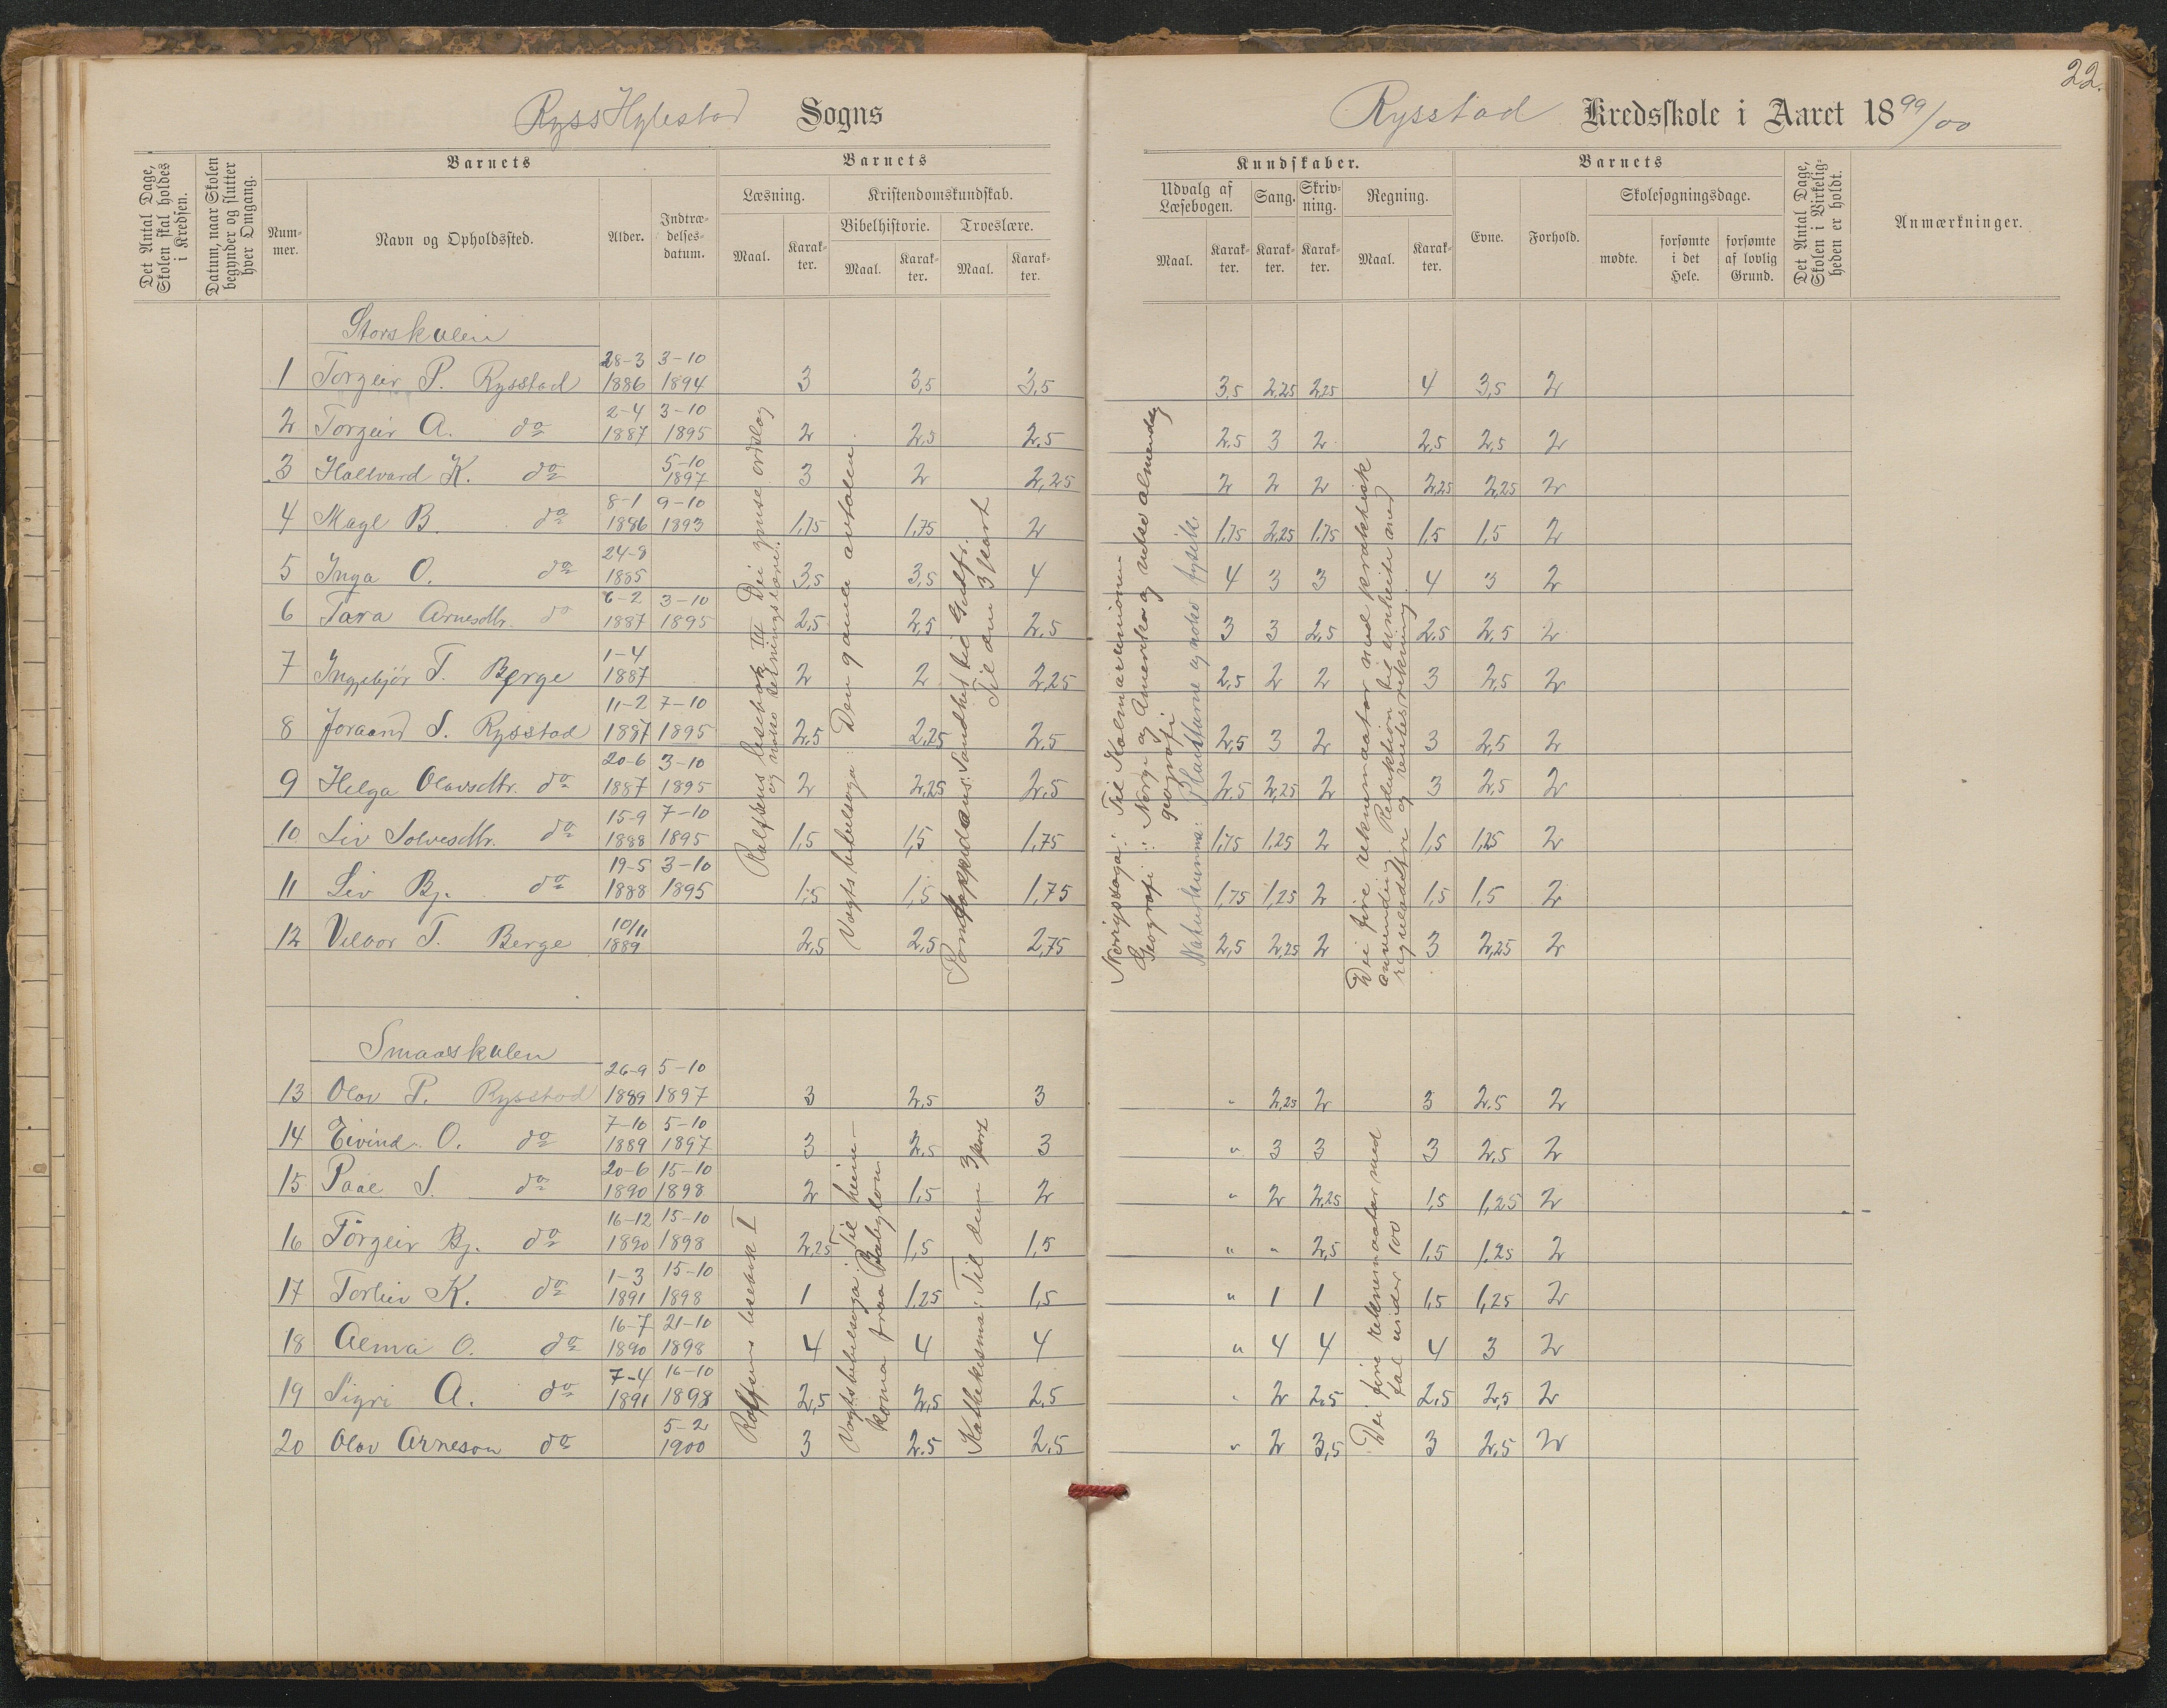 22.
Hylestad Sogns
Rysstad Kredsskole i Aaret 1899/00
Det Antal Dage, Skolen skal holdes i Kredsen.
Datum, naar Skolen begynder og slutter hver Omgang.
Barnets
Nummer.
Navn og Opholdssted.
Alder.
Indtrædelsesdatum.
Barnets
Læsning.
Maal.
Karakter.
Kristendomskundskab.
Bibelhistorie.
Maal.
Karakter.
Troeslære.
Maal.
Karakter.
Kundskaber.
Udvalg af Læsebogen.
Maal.
Karakter.
Sang.
Karakter.
Skrivning.
Karakter.
Regning.
Maal.
Karakter.
Barnets
Evne.
Forhold.
Skolesøgningsdage.
mødte.
forsømte i det Hele.
forsømte af lovlig Grund.
Det Antal Dage, Skolen i Virkeligheden er holdt.
Anmærkninger.
Storskulen
1 Torgeir P. Rysstad 28-3 1886 3-10 1894 3 3,5 3,5 3,5 2,25 2,25 4 3,5 2
2 Torgeir A. do 2-4 1887 3-10 1895 2 2,5 2,5 2,5 3 2 2,5 2,5 2
3 Hallvard K. do 5-10 1897 3 2 2,25 2 2 2 2,25 2,25 2
4 Magl B. do 8-1 1886 9-10 1893 1,75 1,75 2 1,75 2,25 1,75 1,5 1,5 2
5 Inga O. do 24-8 1885 3,5 3,5 4 4 3 3 4 3 2
6 Tara Arnesdtr. do 6-2 1887 3-10 1895 2,5 2,5 2,5 3 3 2,5 2,5 2,5 2
7 Ingebjör T. Berge 1-4 1887 2 2 2,25 2,5 2 2 3 2,5 2
8 Joraand S. Rysstad 11-2 1887 7-10 1895 2,5 2,25 2,5 2,5 3 2 3 2,5 2
9 Helga Olavsdtr. do 20-6 1887 3-10 1895 2 2,25 2,5 2,5 2,25 2 3 2,5 2
10 Liv Solvesdtr. do 15-9 1888 7-10 1895 1,5 1,5 1,75 1,75 1,25 2 1,5 1,25 2
11 Liv Bj. do 19-5 1888 3-10 1895 1,5 1,5 1,75 1,75 1,25 2 1,5 1,5 2
12 Vilbor T. Berge 10/11 1889 2,5 2,5 2,75 2,5 2,25 2 3 2,25 2
Rolfsens lesebok III Dei ymse ordslag
og noko setningslære.
Vogts bibelsoga: Den gamla avtalen.
Pontoppidans: Sandhet til Gudfr.
Til den 3 part
Norigssoga: Til Kalmarunionen
Geografi: Norge og Amerika og noko almendeleg
geografi
Naturkunna: Planterne og noko fysikk.
Dei fire reknemaatar med praktisk
anvending. Reduktion til einheite med
reguladetri og rentesrekning.
Smaaskulen
13 Olav P. Rysstad 26-9 1889 5-10 1897 3 2,5 3 " 2,25 2 3 2,5 2
14 Eivind O. do 7-10 1889 5-10 1897 3 2,5 3 " 3 3 3 2,5 2
15 Paal S. do 20-6 1890 15-10 1898 2 1,5 2 " 2 2,25 1,5 1,25 2
16 Torgeir Bj. do 16-12 1890 15-10 1898 2,25 1,5 1,5 " " 2,5 1,5 1,25 2
17 Torleiv K. do 1-3 1891 15-10 1898 1 1,25 1,5 " 1 1 1,5 1,25 2
18 Alma O. do 16-7 1890 21-10 1898 4 4 4 " 4 4 4 3 2
19 Sigri A. do 7-4 1891 16-10 1898 2,5 2,5 2,5 " 2 2,5 2,5 2,5 2
20 Olav Arneson do 5-2 1900 3 2,5 2,5 " 2 3,5 3 2,5 2
Rolfsens lesebok I
Vogts bibelsoga: Til heim-
koma fraa Babylon
Katekisma: Til denn 3 part
Dei fire reknemaatar med
tal under 100